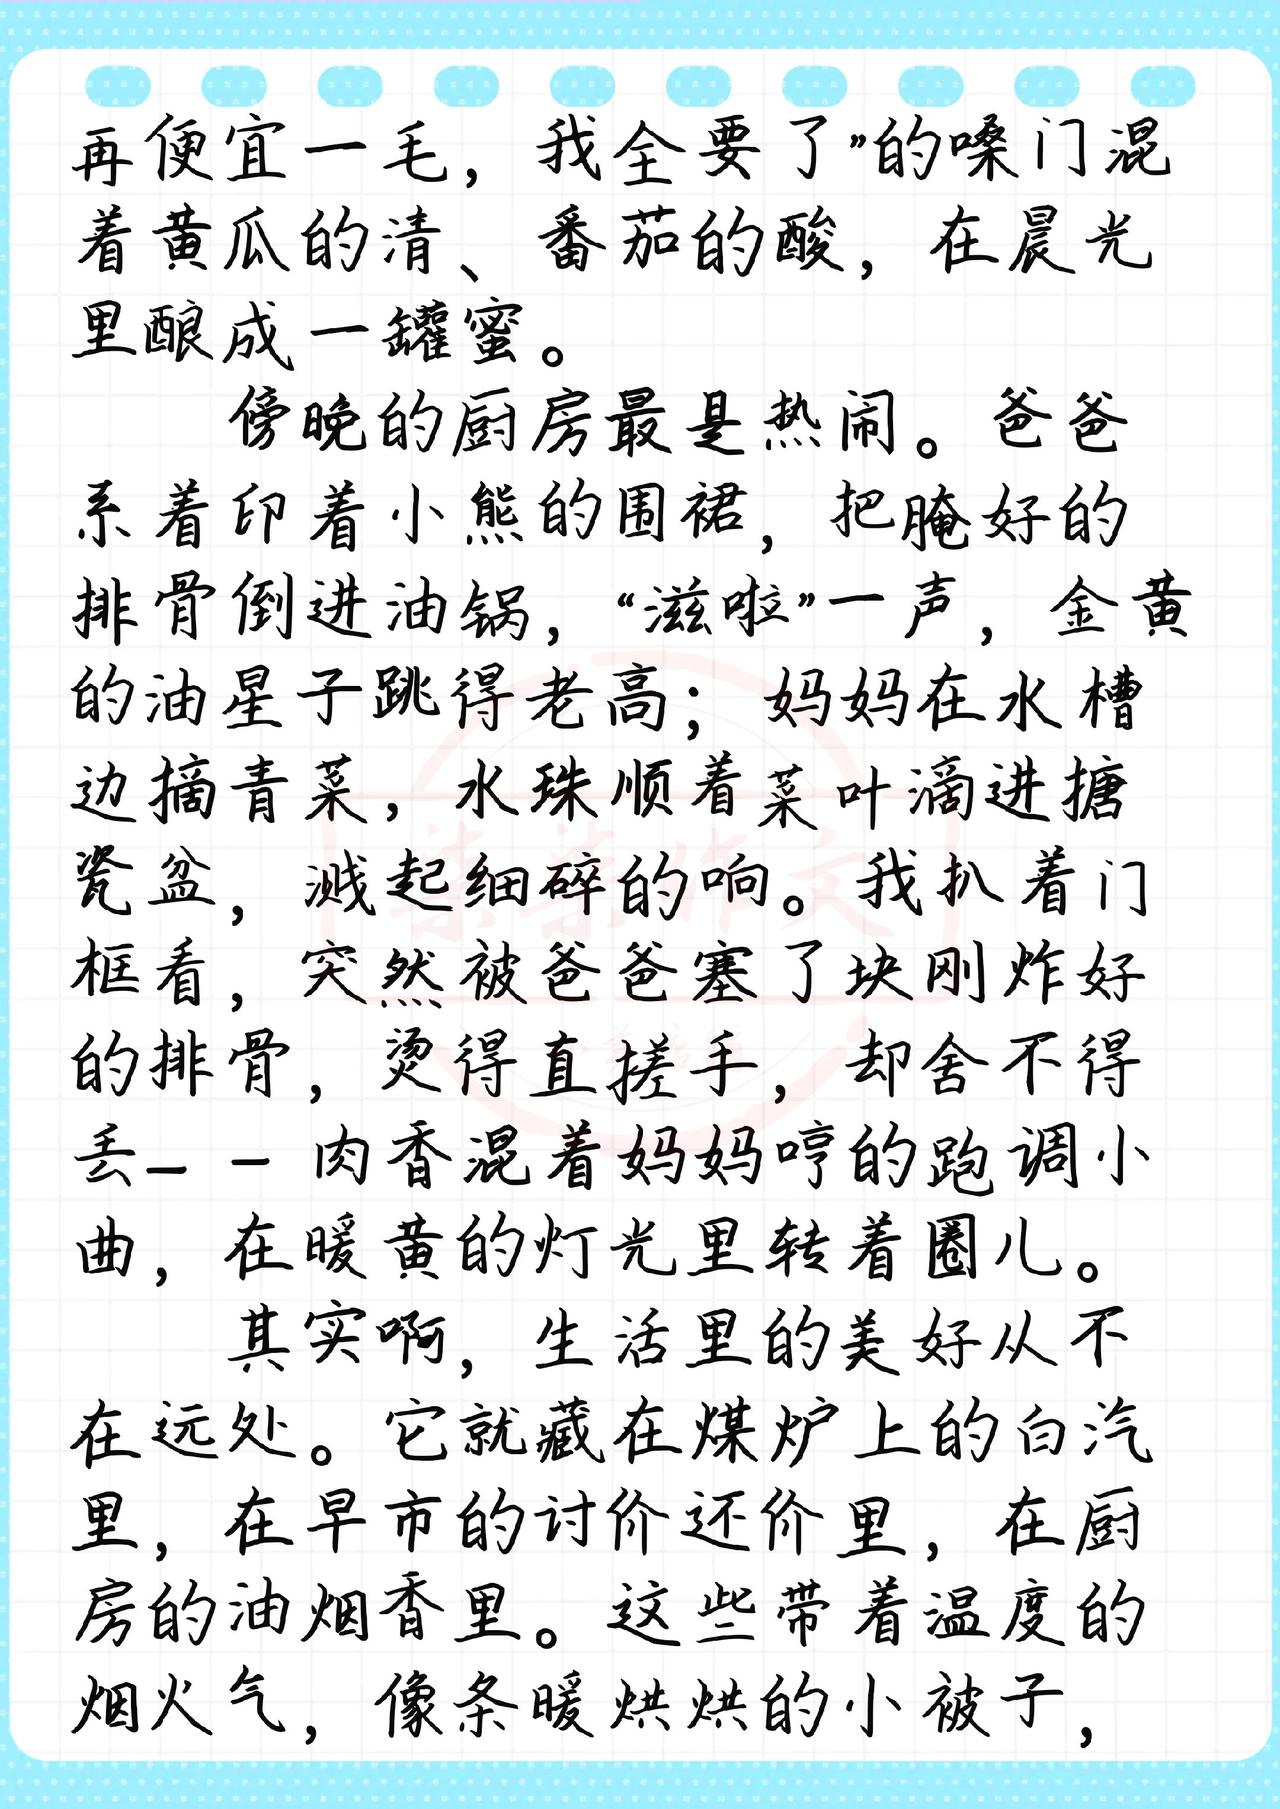 再便宜一毛，我全要了”的嗓门混
着黄瓜的清、番茄的酸，在晨光
里酿成一罐蜜。
傍晚的厨房最是热闹。爸爸
系着印着小熊的围裙，把腌好的
排骨倒进油锅，“滋啦”一声，金黄
的油星子跳得老高；妈妈在水槽
边摘青菜，水珠顺着菜叶滴进搪
瓷盆，溅起细碎的响。我扒着门
框看，突然被爸爸塞了块刚炸好
的排骨，烫得直搓手，却舍不得
丢——肉香混着妈妈哼的跑调小
曲，在暖黄的灯光里转着圈儿。
其实啊，生活里的美好从不
在远处。它就藏在煤炉上的白汽
里，在早市的讨价还价里，在厨
房的油烟香里。这些带着温度的
烟火气，像条暖烘烘的小被子，
柒柒作文